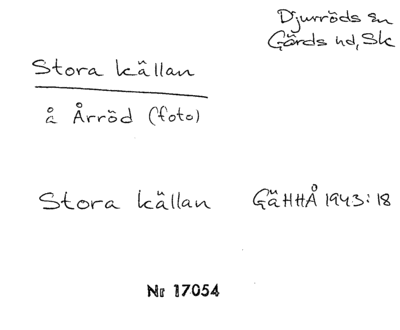 Djurröds sn
Gärds hd, Sk
Stora källan
å Årröd (foto)
Stora källan GäHHÅ 1943:18
Nr 17054